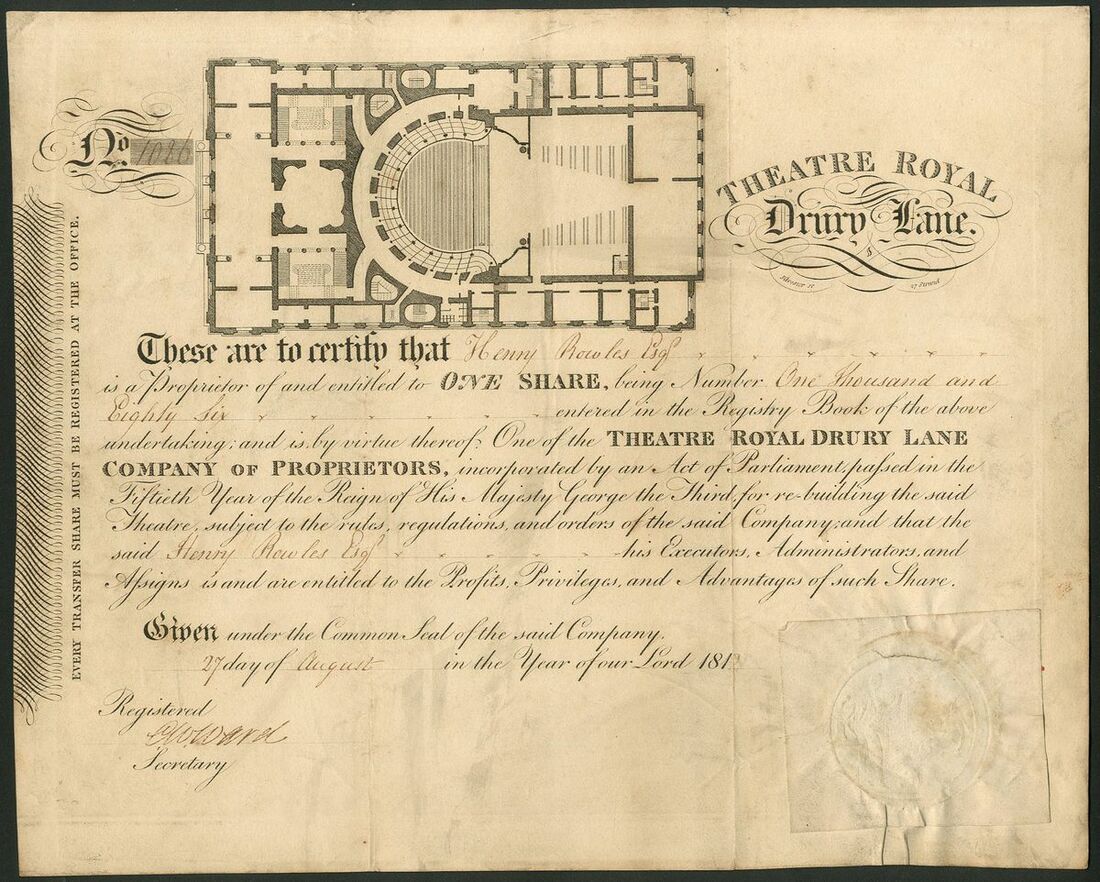 No 1086
THEATRE ROYAL
Drury Lane.
27 Strand
EVERY TRANSFER SHARE MUST BE REGISTERED AT THE OFFICE.
These are to certify that Henry Rowles Esqr
is a Proprietor of and entitled to ONE SHARE, being Number One Thousand and
Eighty Six entered in the Registry Book of the above
undertaking; and is by virtue thereof; One of the THEATRE ROYAL DRURY LANE
COMPANY OF PROPRIETORS, incorporated by an Act of Parliament, passed in the
Fiftieth Year of the Reign of His Majesty George the Third, for re-building the said
Theatre, subject to the rules, regulations, and orders of the said Company; and that the
said Henry Rowles Esqr his Executors, Administrators, and
Assigns is and are entitled to the Profits, Privileges, and Advantages of such Share.
Given under the Common Seal of the said Company.
27 day of August in the Year of our Lord
Registered
Ward
Secretary